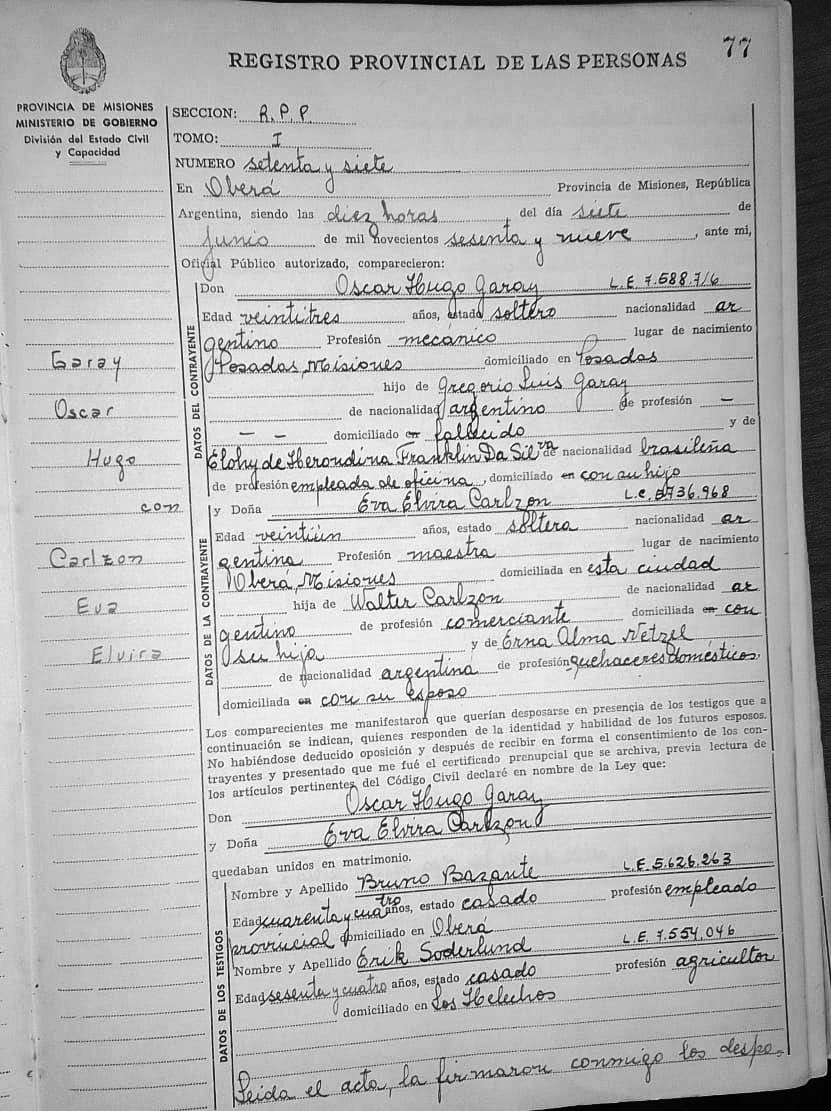 77
REGISTRO PROVINCIAL DE LAS PERSONAS
PROVINCIA DE MISIONES
MINISTERIO DE GOBIERNO
División del Estado Civil
y Capacidad
Garay
Oscar
Hugo
con
Carlzon
Eva
Elvira
SECCION: R. P. P.
TOMO: I
NUMERO setenta y siete
En Oberá Provincia de Misiones, República
Argentina, siendo las diez horas, del día siete de
junio de mil novecientos sesenta y nueve, ante mi,
Oficial Público autorizado, comparecieron:
DATOS DEL CONTRAYENTE
Don Oscar Hugo Garay L.E. 7.588.716
Edad veintitres años, estado soltero nacionalidad ar
gentino Profesión mecánico lugar de nacimiento
Posadas, Misiones domiciliado en Posadas
hijo de Gregorio Luis Garay
de nacionalidad argentino de profesión —
— — domiciliado en fallecido y de
Elohy de Herondina Franklin Da Silva de nacionalidad brasileña
de profesión empleada de oficina, domiciliado en con su hijo
DATOS DE LA CONTRAYENTE
y Doña Eva Elvira Carlzon L.C. 5.736.968
Edad veintiún años, estado soltera nacionalidad ar
gentina Profesión maestra lugar de nacimiento
Oberá, Misiones domiciliada en esta ciudad
hija de Walter Carlzon de nacionalidad ar
gentino de profesión comerciante domiciliada en con
su hija y de Erna Alma Netzel
de nacionalidad argentina de profesión quehaceres domésticos,
domiciliada en con su esposo
Los comparecientes me manifestaron que querían desposarse en presencia de los testigos que a
continuación se indican, quienes responden de la identidad y habilidad de los futuros esposos.
No habiéndose deducido oposición y después de recibir en forma el consentimiento de los con-
trayentes y presentado que me fué el certificado prenupcial que se archiva, previa lectura de
los artículos pertinentes del Código Civil declaré en nombre de la Ley que:
Don Oscar Hugo Garay
y Doña Eva Elvira Carlzon
quedaban unidos en matrimonio.
DATOS DE LOS TESTIGOS
Nombre y Apellido Bruno Bazante L.E. 5.626.263
Edad cuarenta y cuatro años, estado casado profesión empleado
provincial domiciliado en Oberá
Nombre y Apellido Erik Soderlund L.E. 7.554.046
Edad sesenta y cuatro años, estado casado profesión agricultor
domiciliado en Los Helechos
Leida el acta, la firmaron conmigo los despo-